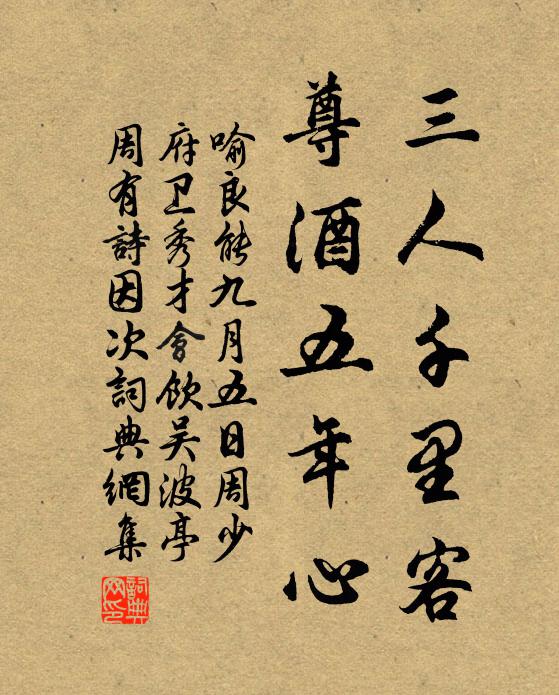 三人千里客
尊酒五年心
喻良能九月五日周少
府卫秀才會飲吴波亭
周有詩因次詞典網集
詞典网印